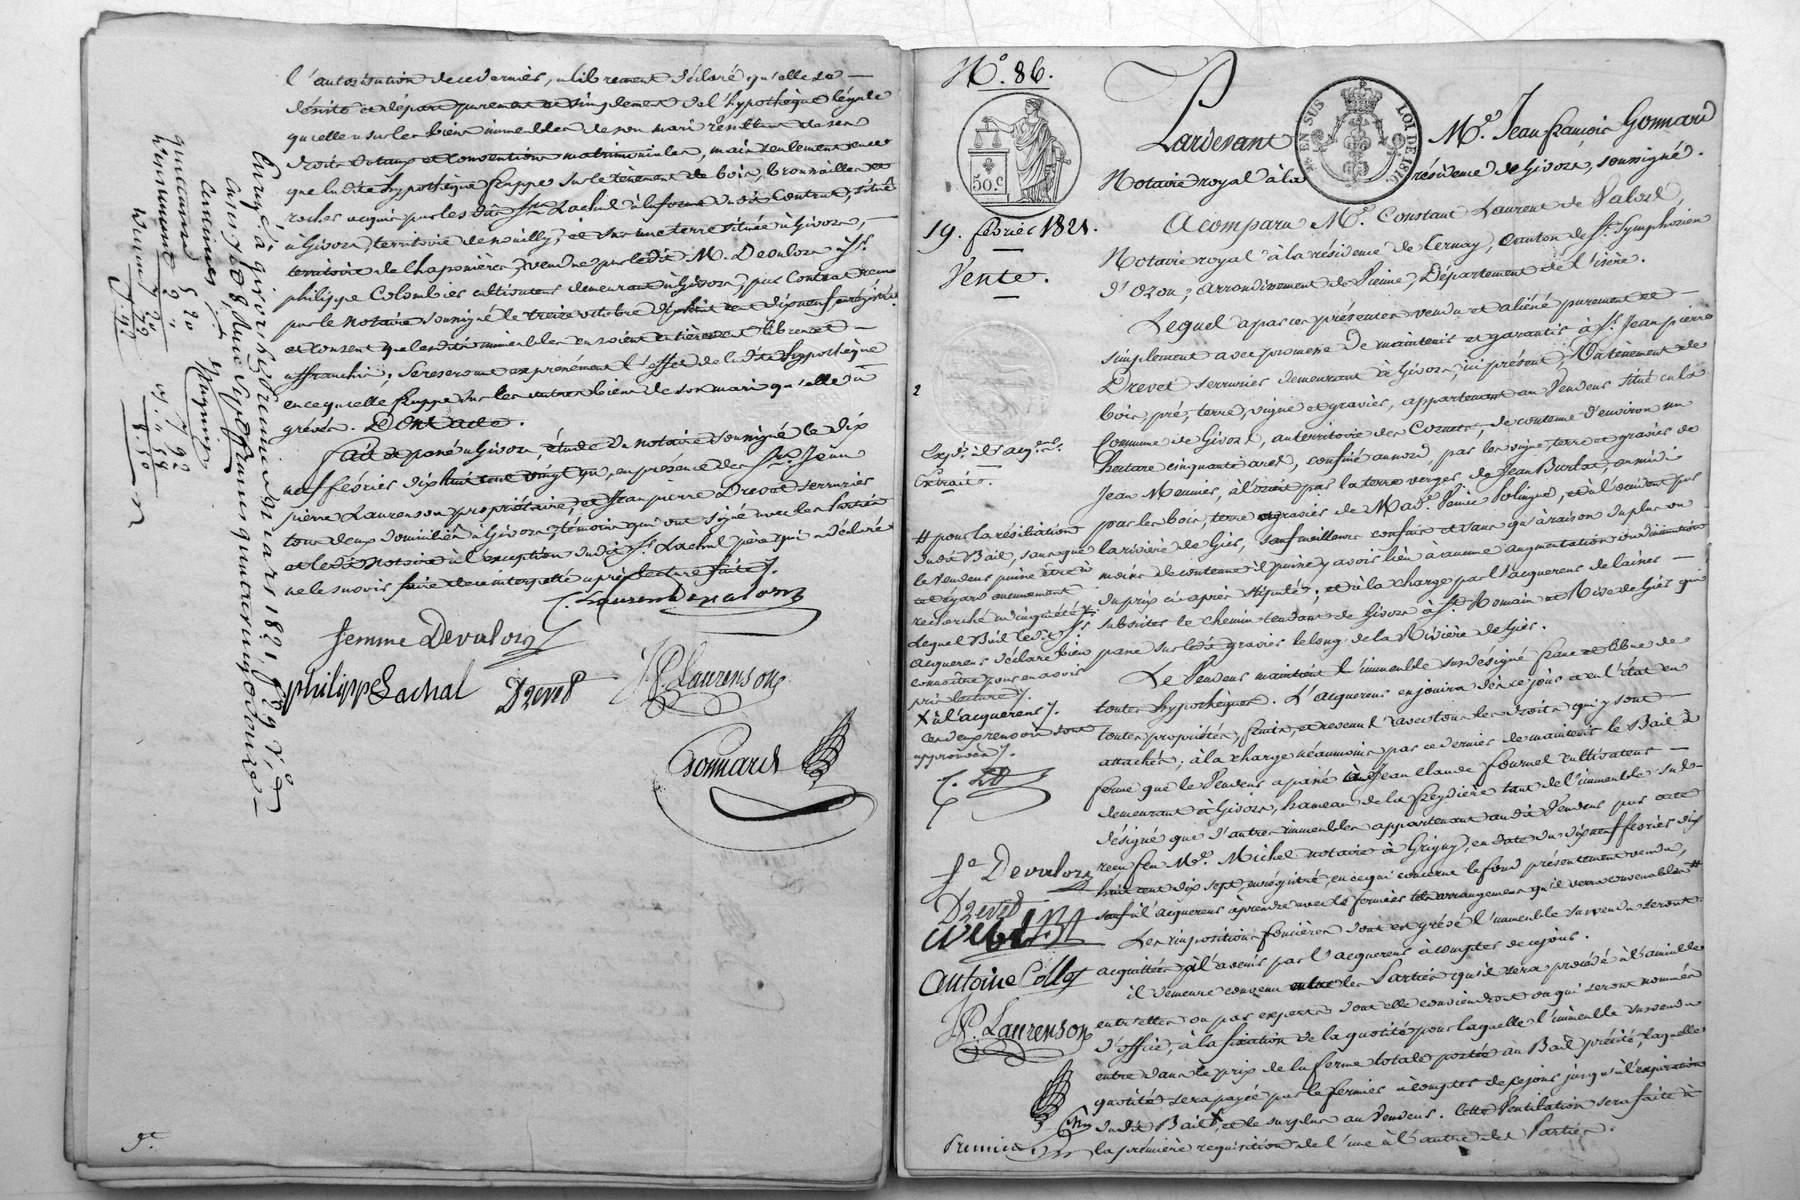 l'autorisation de ce dernier, a librement déclaré qu'elle se
désiste et départ purement et simplement de l'hypothèque légale
qu'elle a sur les biens immeubles de son mari résultant de ses
droits dotaux et conventions matrimoniales, mais seulement en ce
que ladite hypothèque frappe sur le tenement de bois, brousailles et
rocher acquis par les dits Srs. Lachal à la forme dudit Contrat, situé
à Givors, territoire de nouilly, et sur une terre située à Givors,
territoire de Chaponièren, vendue par ledit M. Devalors à Sr.
philippe Colombier cultivateur demeurant à Givors, par Contrat reçu
par le Notaire soussigné le treize octobre dix huit cent dix neuf, enrégistré
et consent que lesdits immeubles en soient entièrement libres et
affranchis; se reservant expressément l'effet de ladite hypothèque
en ce qu'elle frappe sur les autres biens de son mari qu'elle a
grévés. Dont acte.
Fait et passé à Givors, étude du notaire soussigné le dix
neuf février dix huit cent vingt un, en présence des Srs. Jean
pierre Laurenson propriétaire, et Jean pierre Drevet serrurier
tous deux domiciliés à Givors, témoins qui ont signé avec les parties
et ledit Notaire à l'exception dudit Sr. Lachal père qui a déclaré
ne le savoir faire de ce interpellé après lecture faite.
C. Laurent Devalors
femme Devalors
philippe Lachal Drevet J.P. Laurenson
Gonnard
N°. 86.
50.c
EN SUS
LOI DE 1816
19. février 1821.
Vente.
Extrait.
Pardevant Me. Jean françois Gonnard
Notaire royal à la résidence de Givors, soussigné.
A comparu Me. Constant Laurent de Valors,
Notaire royal à la résidence de Ternay, Canton de St. Symphorien
d'Ozon, arrondissement de Vienne, Département de l'isère.
Lequel a par ces présentes vendu et aliéné purement et
simplement avec promesse de maintenir et garantir à Sr. Jean pierre
Drevet serrurier demeurant à Givors, ici présent, Un tènement de
bois, pré, terre, vigne et gravier, appartenant au Vendeur situé en la
Commune de Givors, au territoire des Cornets, de contenue d'environ un
hectare cinquante ares, confiné au nord, par les vigne, terre et gravier de
Jean Meunier, à l'orient par la terre verger de Jean Burlat, au midi
par les bois, terre et gravier de Made. Venise Solingue, et à l'occident par
la rivière de Gier, sauf meilleurs confins et sans qu'à raison du plus ou
moins de contenue il puisse y avoir lieu à aucune augmentation ou diminution
du prix ci après stipulé; et à la charge par l'acquereur de laisser
subsister le chemin tendant de Givors à St. Romain et Rive de Gier qui
passe sur ledit gravier le long de la Rivière de Gier.
Le Vendeur maintient l'immeuble susdésigné franc et libre de
toutes hypothèques. L'acquereur en jouira dès ce jour et en l'état en
toutes propriétés, fruits, et revenus, avec tous les droits qui y sont
attachés; à la charge néanmoins par ce dernier de maintenir le Bail à
ferme que le Vendeur a passé à Jean Claude fournel cultivateur
demeurant à Givors, hameau de la freydière tant de l'immeuble sus
désigné que d'autres immeubles appartenant audit Vendeur par acte
reçu feu Me. Michel notaire à Grigny, en date du dix neuf février dix
huit cent dix sept, enrégistré, en ce qui concerne le fond présentement vendu,
sauf à l'acquereur à prendre avec le fermier tels arrangemens qu'il verra convenables #
Les impositions foncières dont est grévé l'immeuble sus vendu seront
acquittées à l'avenir par l'acquereur à compter de ce jour.
il demeure convenu entre les Parties qu'il sera procédé à l'amiable
entr'elles ou par experts dont elles conviendront ou qui seront nommés
d'office, à la fixation de la quotité pour laquelle l'immeuble susvendu
entre dans le prix de la ferme totale portée au Bail précité, laquelle
quotité sera payée par le fermier à compter de ce jour jusqu'à l'expiration
dudit Bail X, et le surplus au Vendeur. Cette Ventilation sera faite à
la première requisition de l'une à l'autre des Parties.
# pour la résiliation
dudit Bail, sans que
le Vendeur puisse être à
cet égard aucunement
recherché ni inquiété
Lequel Bail ledit Sr.
acquereur déclare bien
connaître pour en avoir
pris lecture.
X à l'acquereur.
Ces deux renvois sont
approuvés.
fe Devalors
Drevet
Antoine Collet
J.P. Laurenson
Premier